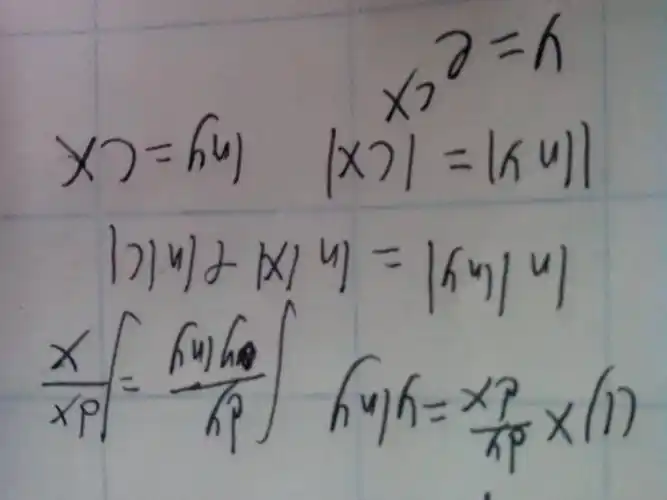 (1) x dy/dx = y ln y  ∫ dy/(y ln y) = ∫ dx/x
ln |ln y| = ln |x| + ln |c|
|ln y| = |cx|  ln y = cx
y = e^cx